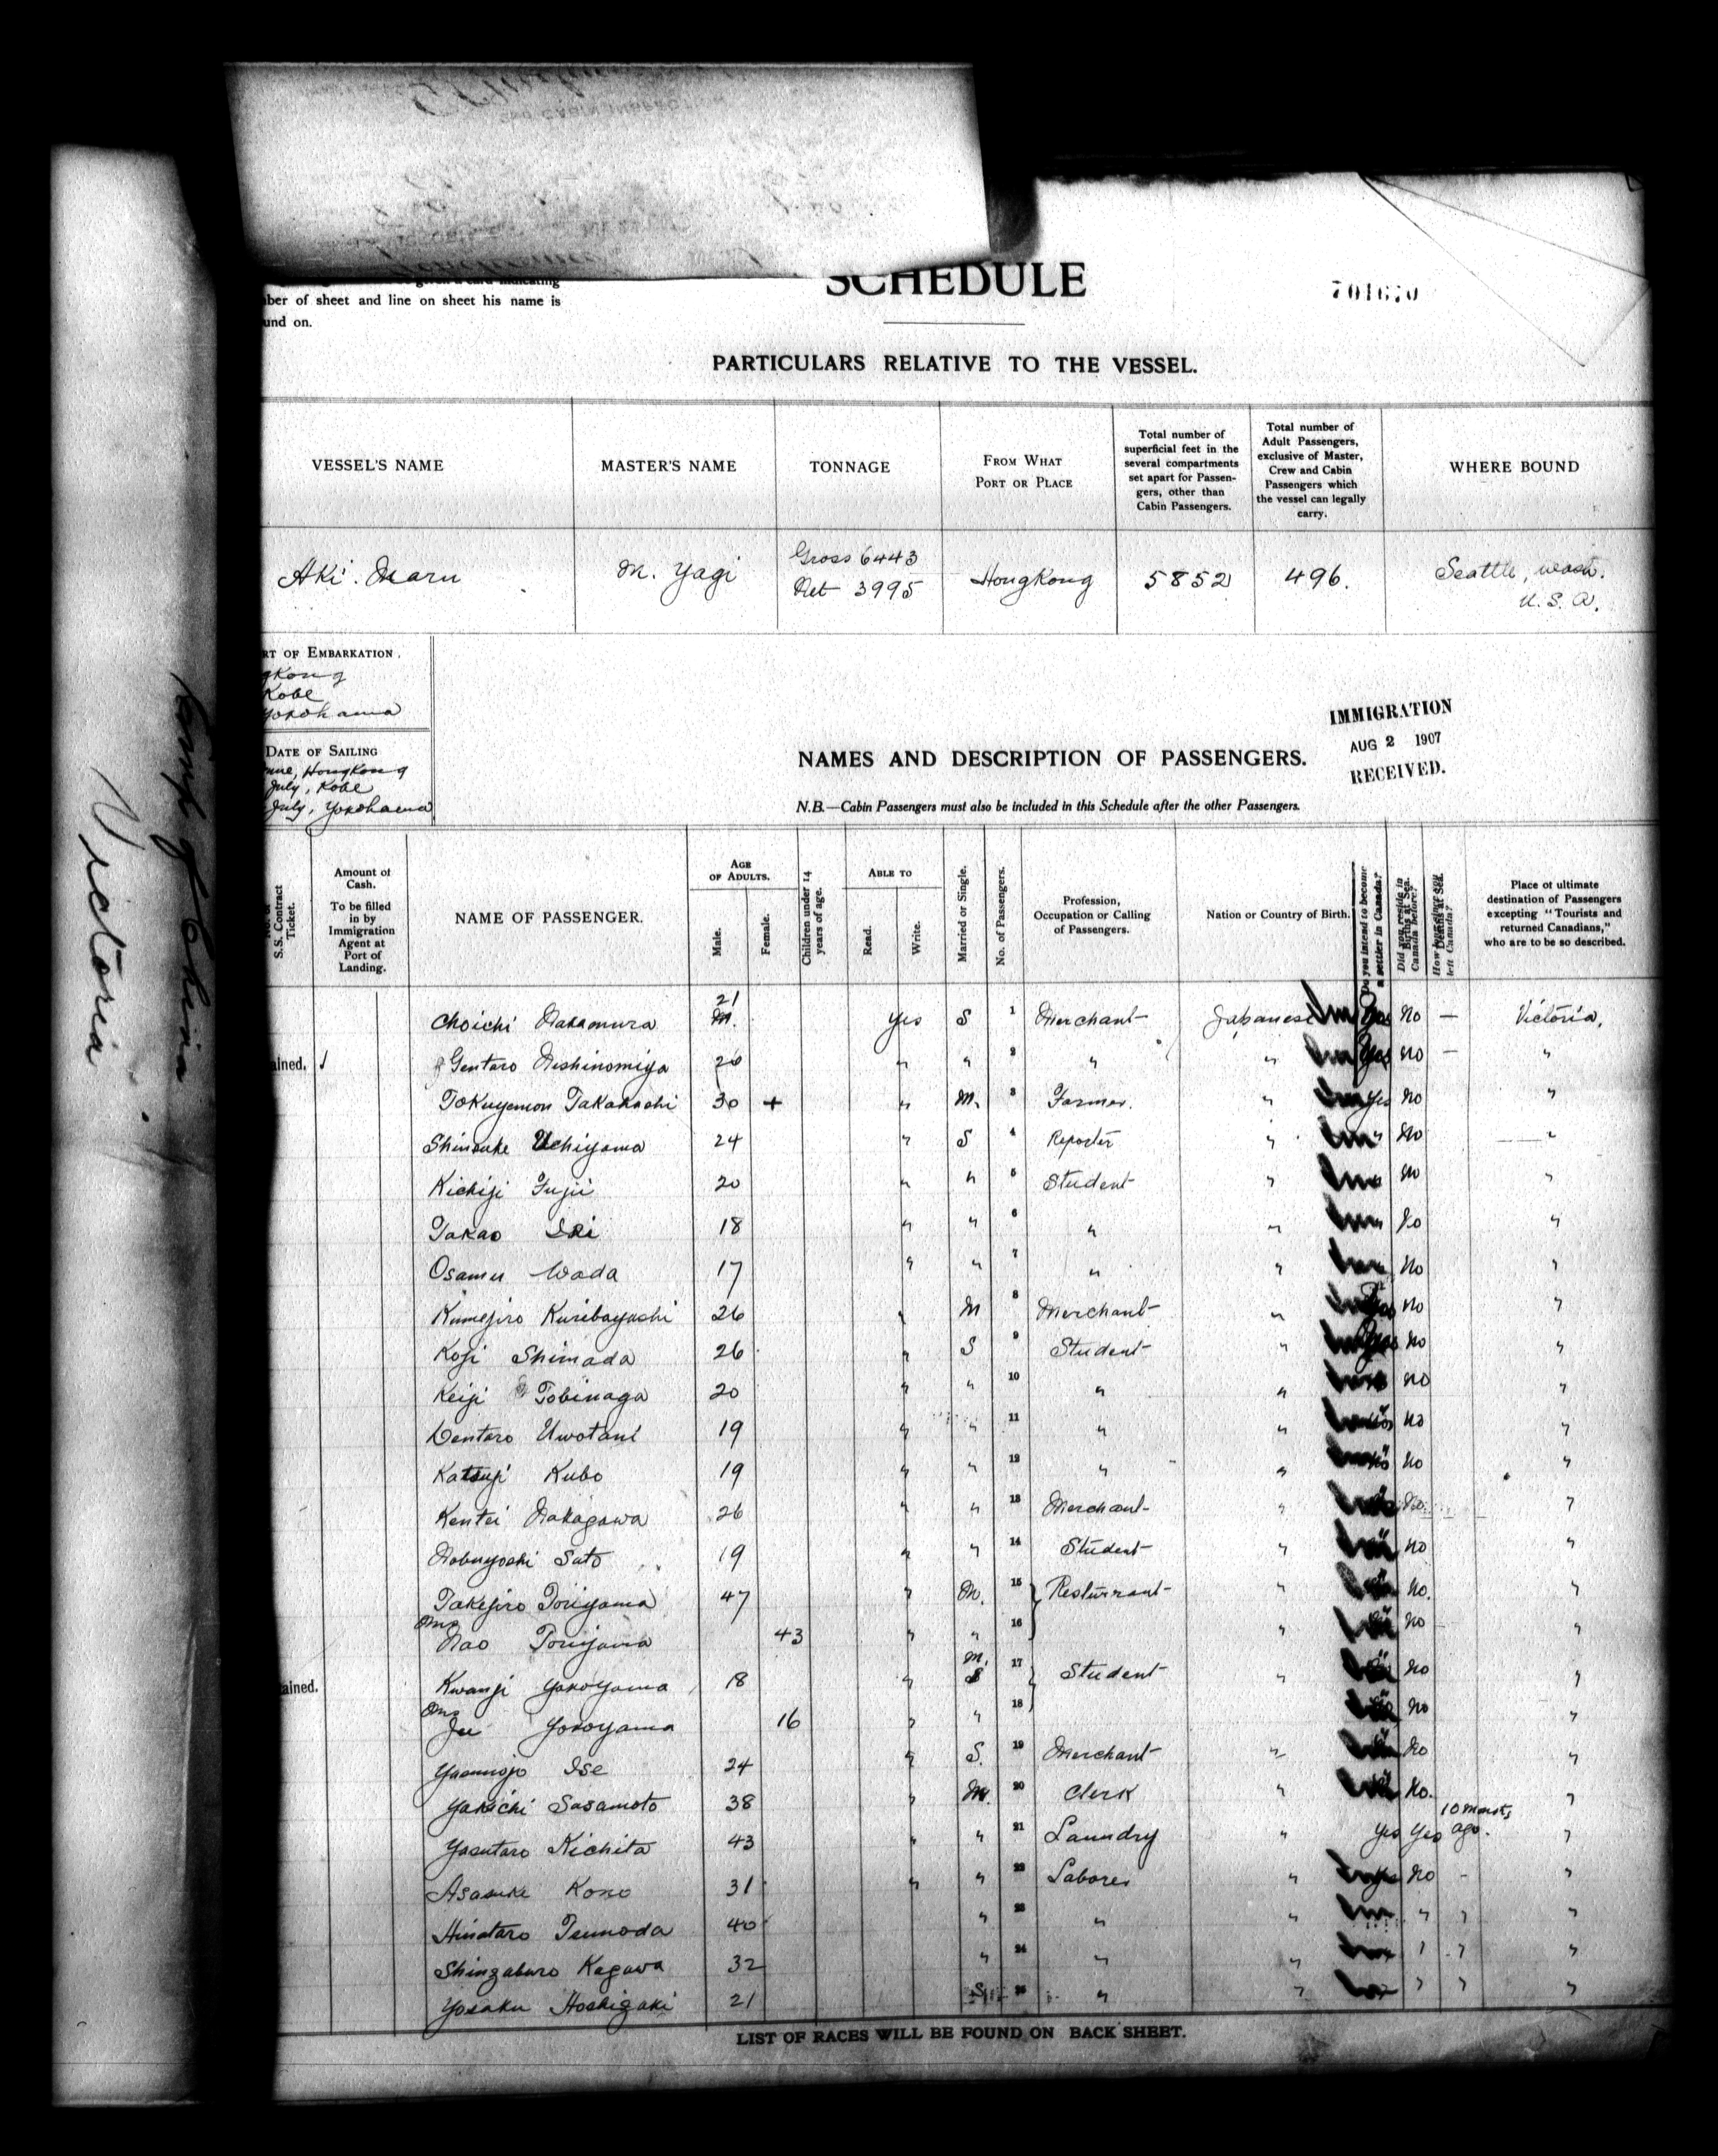 ber of sheet and line on sheet his name is
und on.
SCHEDULE
701670
PARTICULARS RELATIVE TO THE VESSEL.
VESSEL'S NAME
MASTER'S NAME
TONNAGE
From What
Port or Place
Total number of
superficial feet in the
several compartments
set apart for Passen-
gers, other than
Cabin Passengers.
Total number of
Adult Passengers,
exclusive of Master,
Crew and Cabin
Passengers which
the vessel can legally
carry.
WHERE BOUND
Aki Maru
M. Yagi
Gross 6443
Net 3995
Hongkong
5852
496.
Seattle, Wash.
U.S.A.
rt of Embarkation.
gkong
Kobe
Yokohama
Date of Sailing
une, Hongkong
July, Kobe
July, Yokohama
NAMES AND DESCRIPTION OF PASSENGERS.
IMMIGRATION
AUG 2 1907
RECEIVED.
N.B.—Cabin Passengers must also be included in this Schedule after the other Passengers.
S.S. Contract
Ticket.
Amount of
Cash.
To be filled
in by
Immigration
Agent at
Port of
Landing.
NAME OF PASSENGER.
Age
of Adults.
Male.
Female.
Children under 14
years of age.
Able to
Read.
Write.
Married or Single.
No. of Passengers.
Profession,
Occupation or Calling
of Passengers.
Nation or Country of Birth.
Do you intend to become
a settler in Canada?
Did you reside in
Canada before?
left Canada?
Place of ultimate
destination of Passengers
excepting "Tourists and
returned Canadians,"
who are to be so described.
Choichi Nakamura 21 M. Yes S 1 Merchant Japanese Yes No — Victoria,
ained. Gentaro Nishinomiya 26 " " 2 " " Yes No — "
Tokuyemon Takahashi 30 + " M. 3 Farmer. " Yes No "
Shinsuke Uchiyama 24 " S 4 Reporter " " No "
Kichiji Fujii 20 " " 5 Student " No "
Takao Iki 18 " " 6 " " No "
Osamu Wada 17 " " 7 " " No "
Kumejiro Kuribayashi 26 " M 8 Merchant " No "
Koji Shimada 26 " S 9 Student " No "
Keiji Tobinaga 20 " " 10 " " No "
Dentaro Uwotani 19 " " 11 " " No "
Katsuji Kubo 19 " " 12 " " No "
Kentei Nakagawa 26 " " 13 Merchant " No. "
Nobuyoshi Sato 19 " " 14 Student " No "
Takejiro Toriyama 47 " M. 15 Resturrant " No. "
Mrs Nao Toriyama 43 " " 16 " No "
ained. Kwanji Yokoyama 18 " M. S 17 Student " No "
Mrs Yokoyama 16 " " 18 No "
Ise 24 " S. 19 Merchant " No "
Yakichi Sasamoto 38 " M. 20 Clerk " No. "
Yasutaro Kichita 43 " " 21 Laundry " Yes Yes 10 months ago. "
Asasuke Kono 31 " " 22 Laborer " Yes No - "
Hinotaro Tsunoda 40 " 23 " " " " "
Shinzaburo Kagawa 32 " 24 " " " " "
Yosaku Hoshigaki 21 S 25 " " " " "
LIST OF RACES WILL BE FOUND ON BACK SHEET.
Emp of China
Victoria